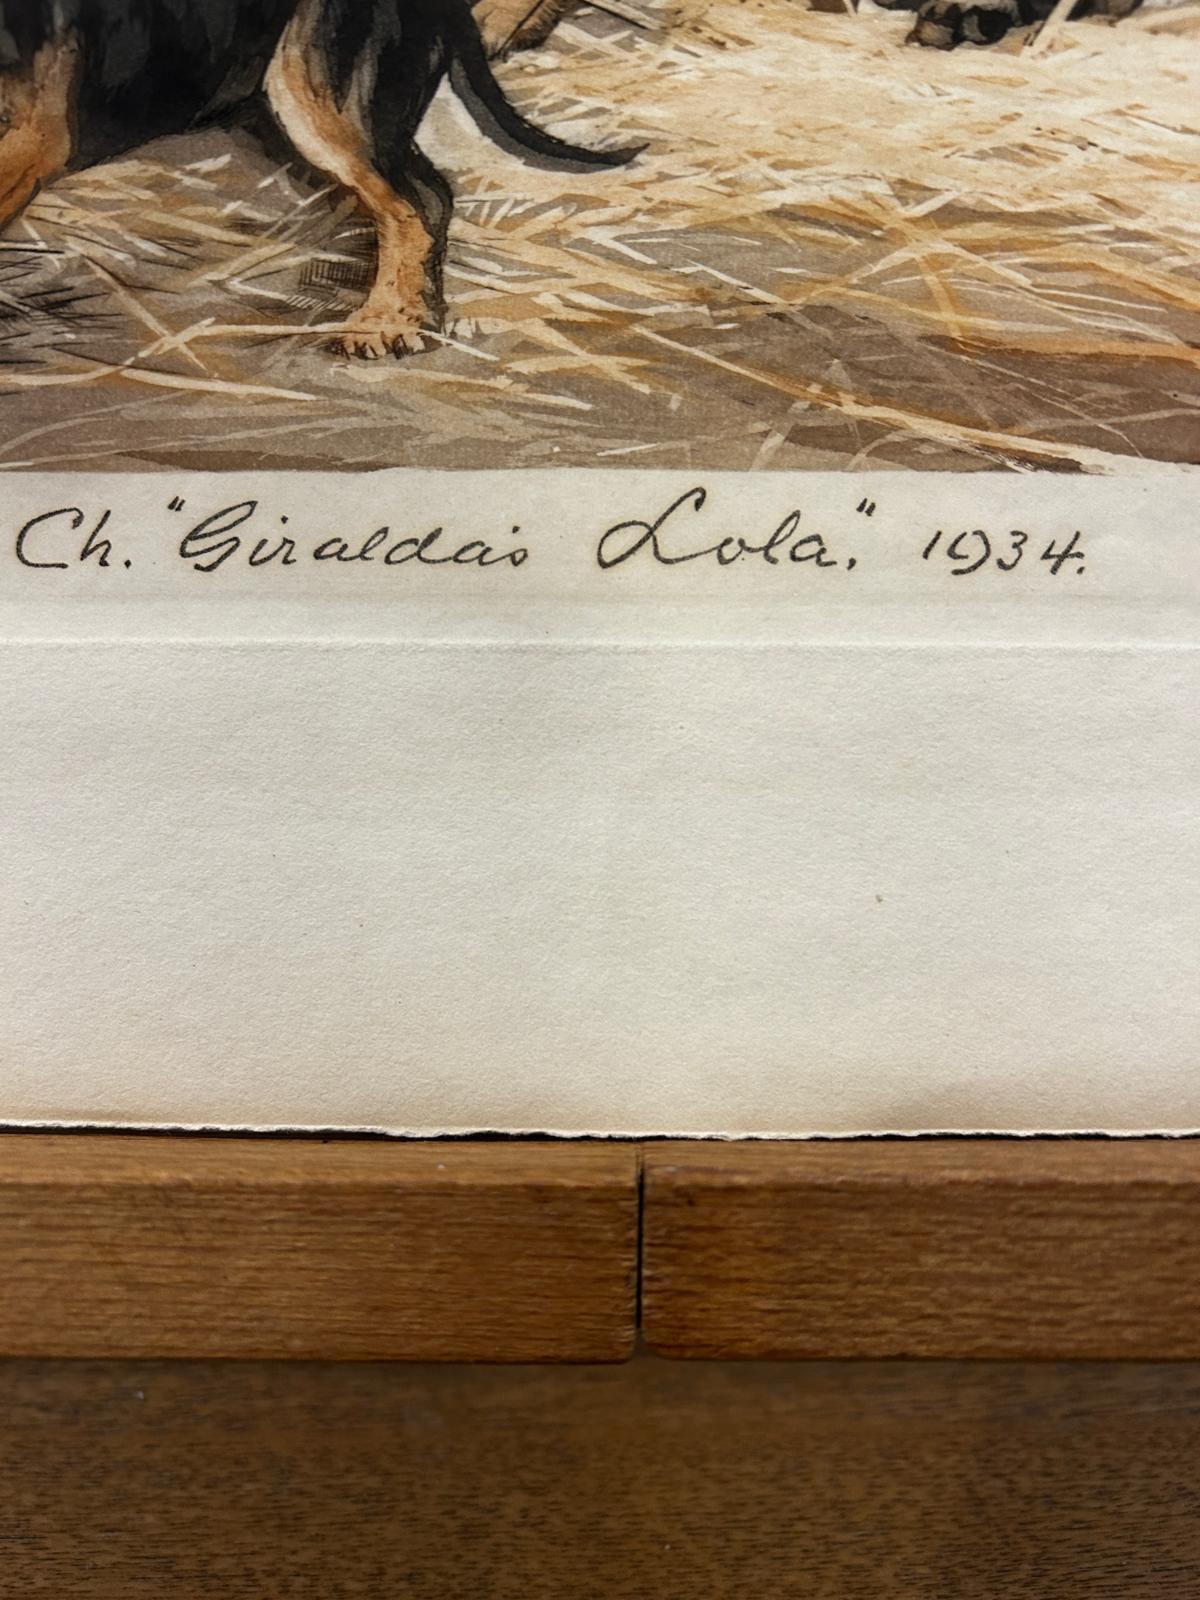 Ch. "Giralda's Lola." 1934.